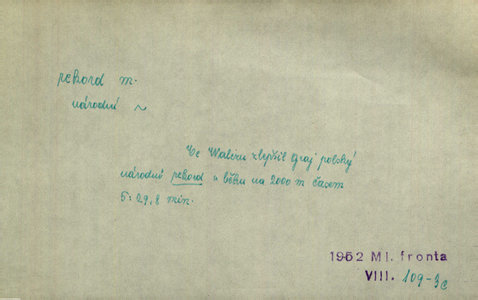 rekord m.
národní ~
Ve zlepšil Graj polský
národní rekord v běhu na 2000 m časem
5:29,8 min.
1952 Ml. fronta
VIII. 109-3c